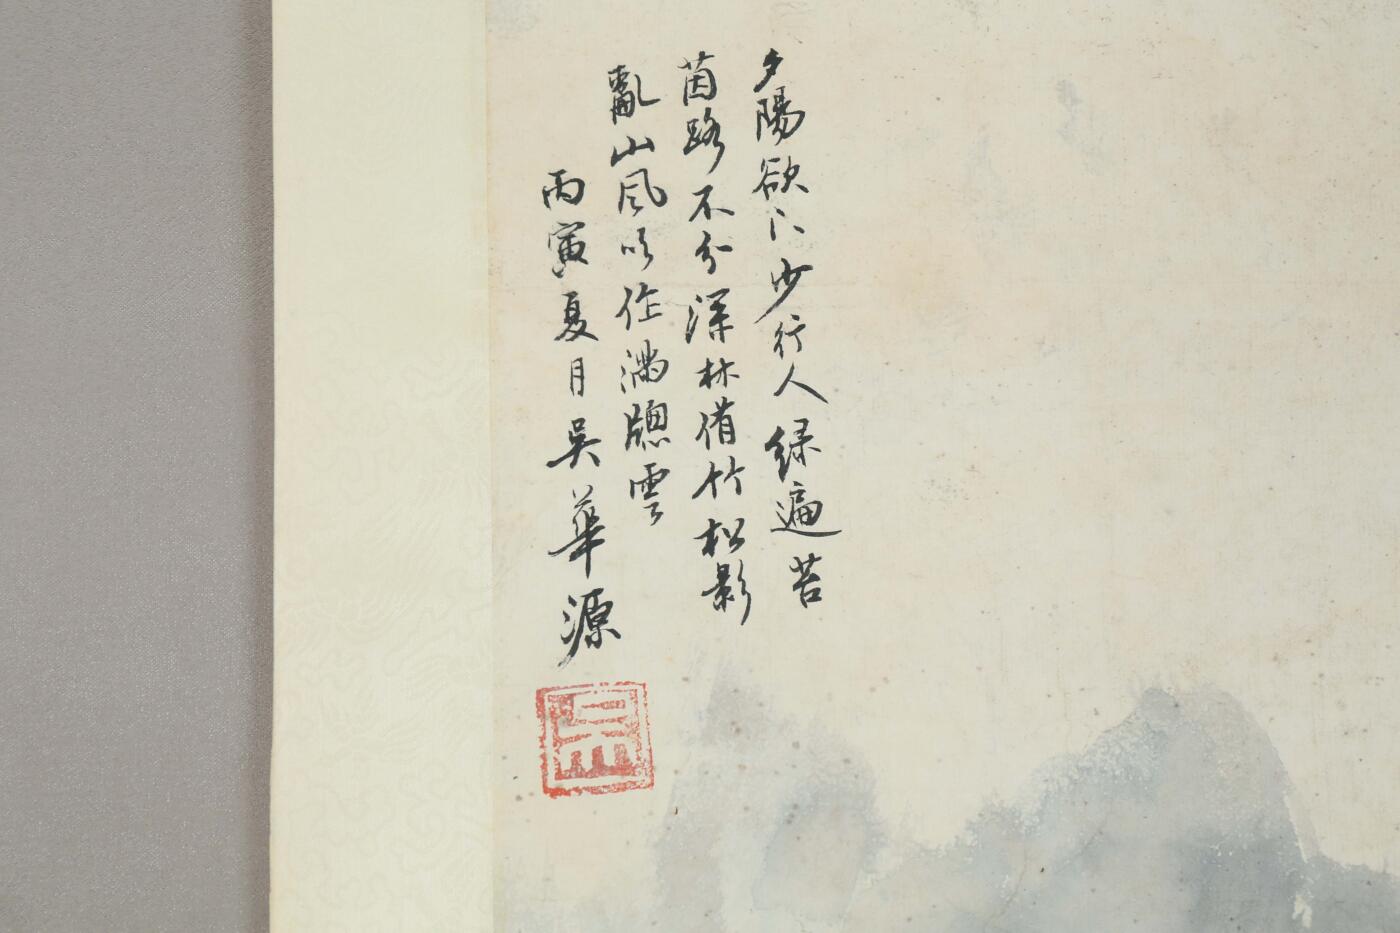 夕陽欲下少行人綠遍苔
茵路不分深林借竹松影
亂山風吹作滿牕雲
丙寅夏月吳華源